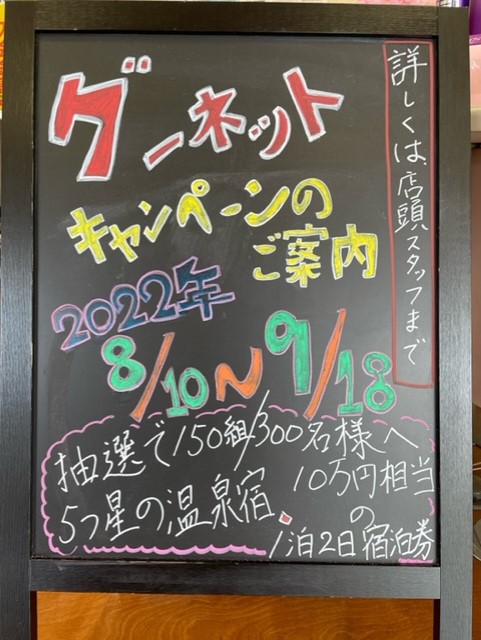 グーネット
キャンペーンの
ご案内
2022年
8/10〜9/18
詳しくは、店頭スタッフまで
抽選で150組/300名様へ
5つ星の温泉宿、10万円相当
の
1泊2日宿泊券